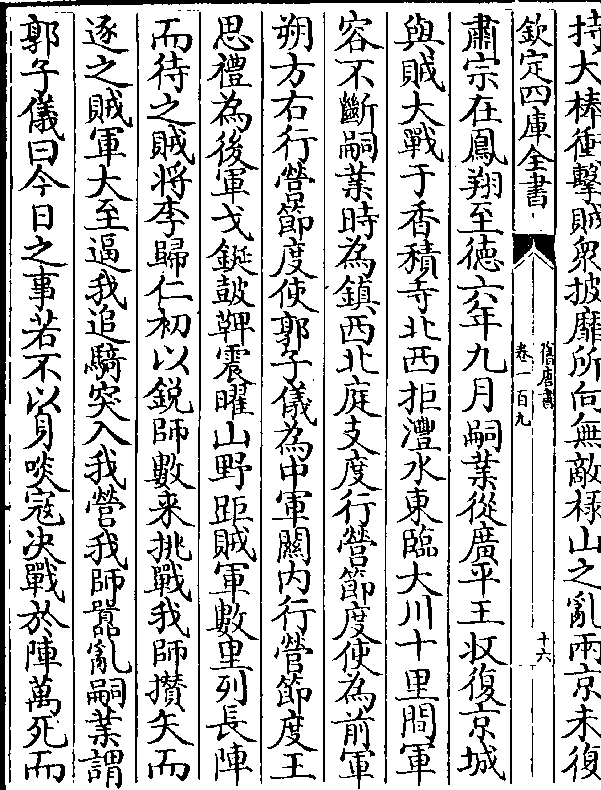 持大棒衝擊賊衆披靡所向無敵禄山之亂兩京未復
欽定四庫全書
舊唐書
卷一百九
十六
肅宗在鳳翔至德六年九月嗣業從廣平王收復京城
與賊大戰于香積寺北西拒灃水東臨大川十里間軍
容不斷嗣業時為鎮西北庭支度行營節度使為前軍
朔方右行營節度使郭子儀為中軍關内行營節度王
思禮為後軍戈鋋鼓鞞震曜山野距賊軍數里列長陣
而待之賊將李歸仁初以鋭師數来挑戰我師攢矢而
逐之賊軍大至逼我追騎突入我營我師囂亂嗣業謂
郭子儀曰今日之事若不以身啖寇决戰於陣萬死而